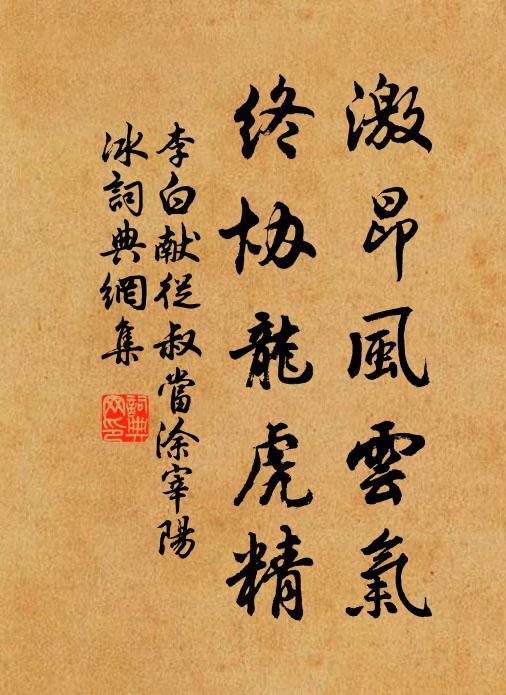 激昂風雲氣
終協龍虎精
李白献從叔當涂宰陽
冰詞典網集
詞典
网印